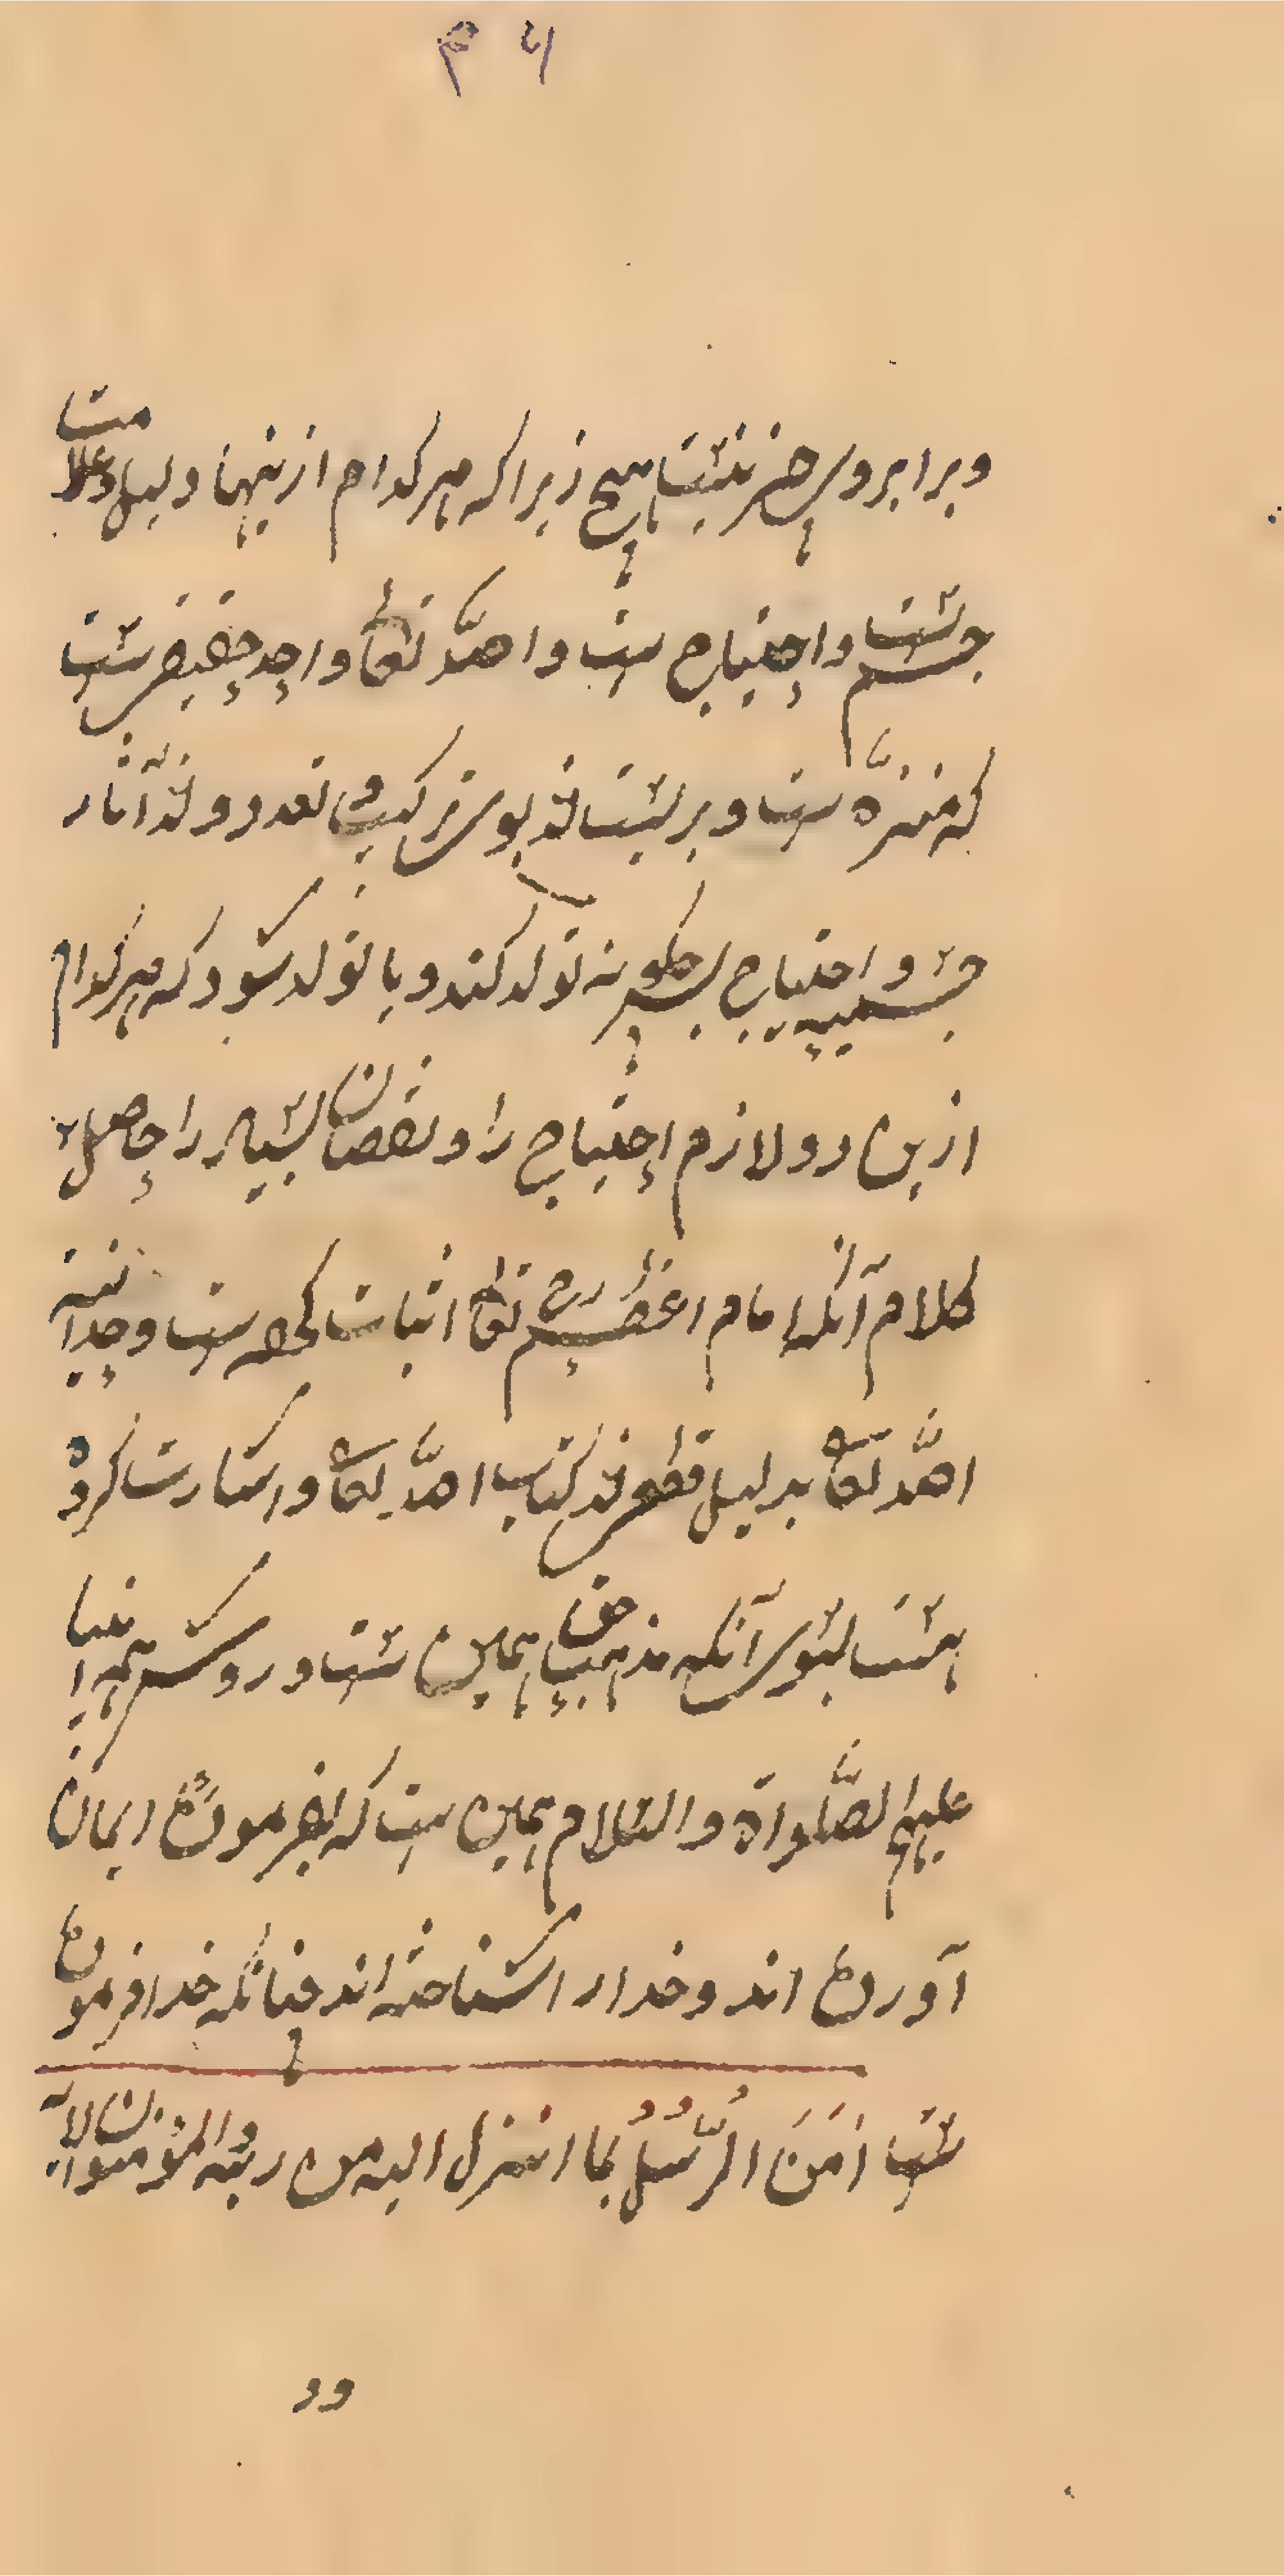 و برابر وی چیز نیست هیچ زیرا که هر کدام ازینها دلیل و علامت
جسمست و احتیاج ست و الله تعالی واحد حقیقی ست
که منزه ست و بریست از بوی ترکیب و تعدد و از آثار
جسمیه و احتیاج پس چگونه تولد کند و یا تولد شود که هر کدام
ازین دو لازم احتیاج را و نقصان بسیار را حاصل
کلام آنکه امام اعظم رح تعالی اثبات کرده ست وحدانیة
الله تعالی بدلیل قطعی از کتاب الله تعالی و اشارت کرده
است بسوی آنکه مذهب حق همین ست و روش همه انبیا
علیهم الصلواة والسلام همین ست که بفرموده ایمان
آورده اند و خدا را شناخته اند چنانکه خدا فرموده
ست امَنَ الرَّسُولُ بما انزل الیه من ربه والمؤمنون الآیة
دد